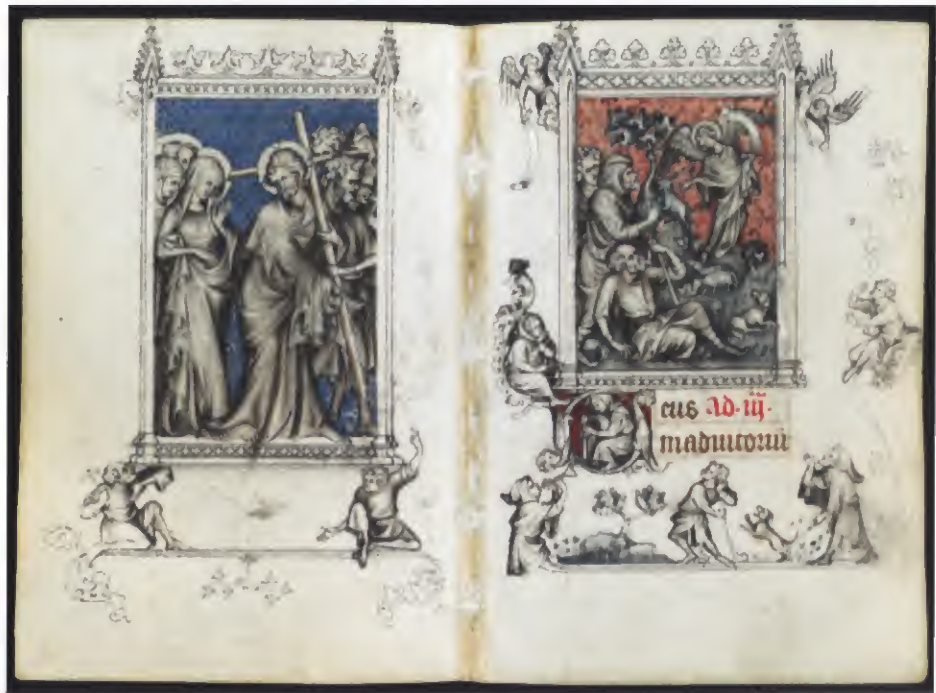 eus Ad·iij·
madiutoriu